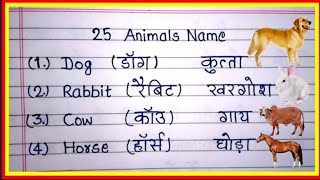 25 Animals Name
(1.) Dog (डॉग) कुत्ता
(2.) Rabbit (रैबिट) खरगोश
(3.) Cow (कॉउ) गाय
(4) Horse (हॉर्स) घोड़ा